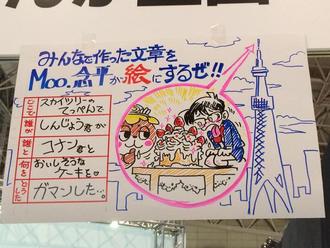 みんなで作った文章を
Moo.念平が絵にするぜ!!
どこで
スカイツリーの
てっぺんで
誰が
しんじょう君が
誰と
コナン君と
何を
おいしそうな
ケーキを。
どうした
ガマンした…。